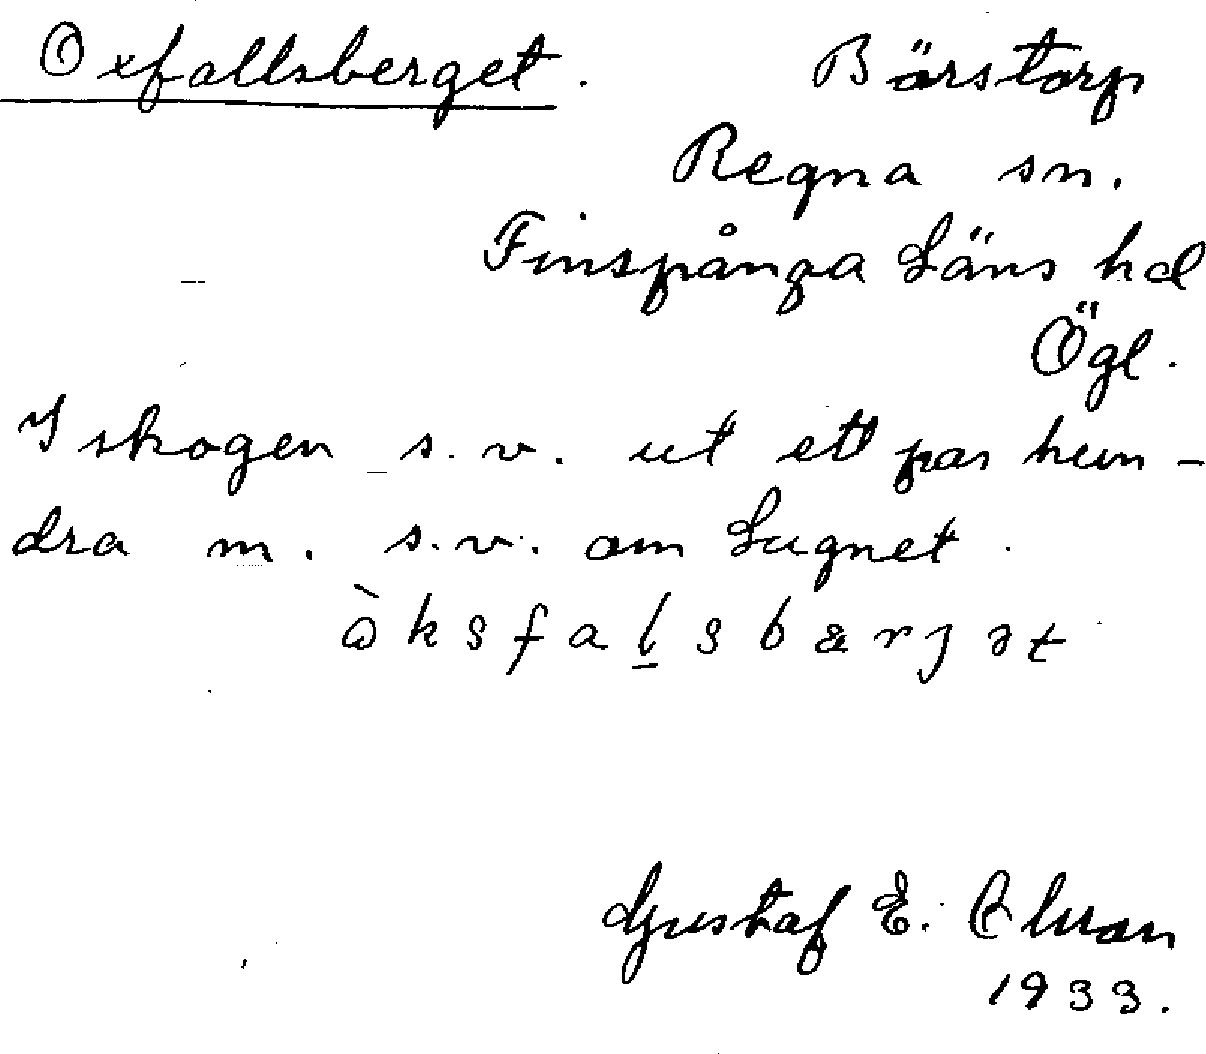 Oxfallsberget. Börstorp
Regna sn.
Finspånga Läns hd
Ögl.
I skogen s.v. ut ett par hun-
dra m. s.v. om Lugnet.
Gustaf E.
1933.